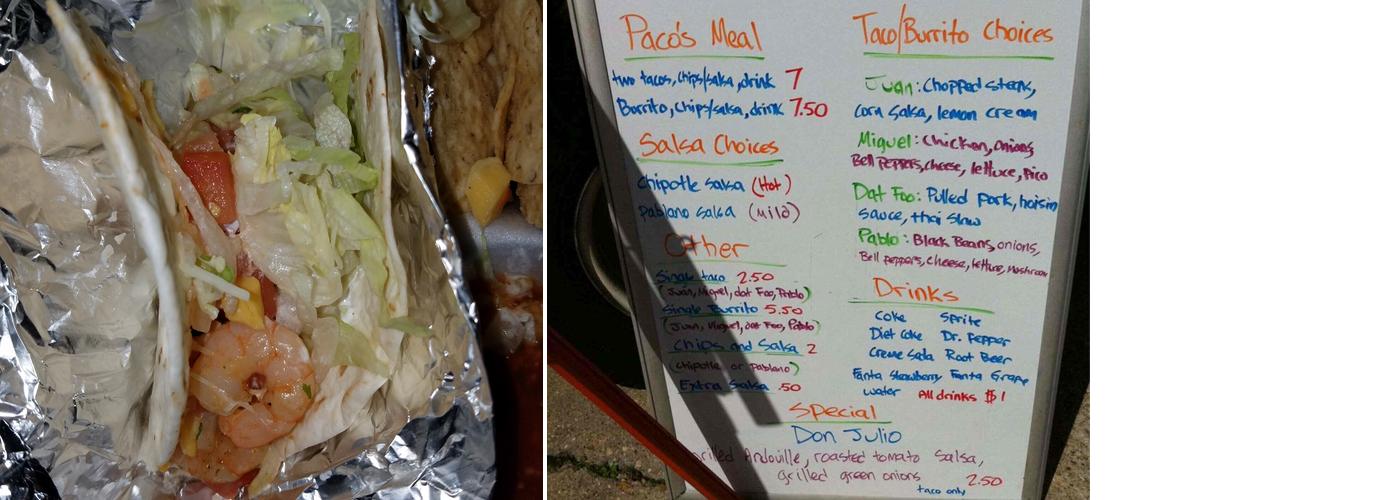 Paco's Meal
two tacos, chips/salsa, drink 7
Burrito, chips/salsa, drink 7.50
Salsa Choices
Chipotle Salsa (Hot)
Pablano Salsa (Mild)
Other
Single taco 2.50
(Juan, Miguel, dat Foo, Pablo)
Single Burrito 5.50
(Juan, Miguel, dat Foo, Pablo)
Chips and Salsa 2
(Chipotle or Pablano)
Extra Salsa .50
Taco/Burrito Choices
Juan: Chopped steak,
corn salsa, lemon cream
Miguel: Chicken, onions,
Bell Peppers, cheese, lettuce, Pico
Dat Foo: Pulled pork, hoisin
sauce, thai slaw
Pablo: Black Beans, onions,
Bell peppers, cheese, lettuce, Mushroom
Drinks
Coke Sprite
Diet Coke Dr. Pepper
Creme Soda Root Beer
Fanta Strawberry Fanta Grape
water All drinks $1
Special
Don Julio
Andouille, roasted tomato Salsa,
grilled green onions 2.50
taco only